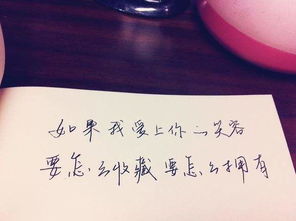 如果我爱上你的笑容
要怎么收藏要怎么拥有